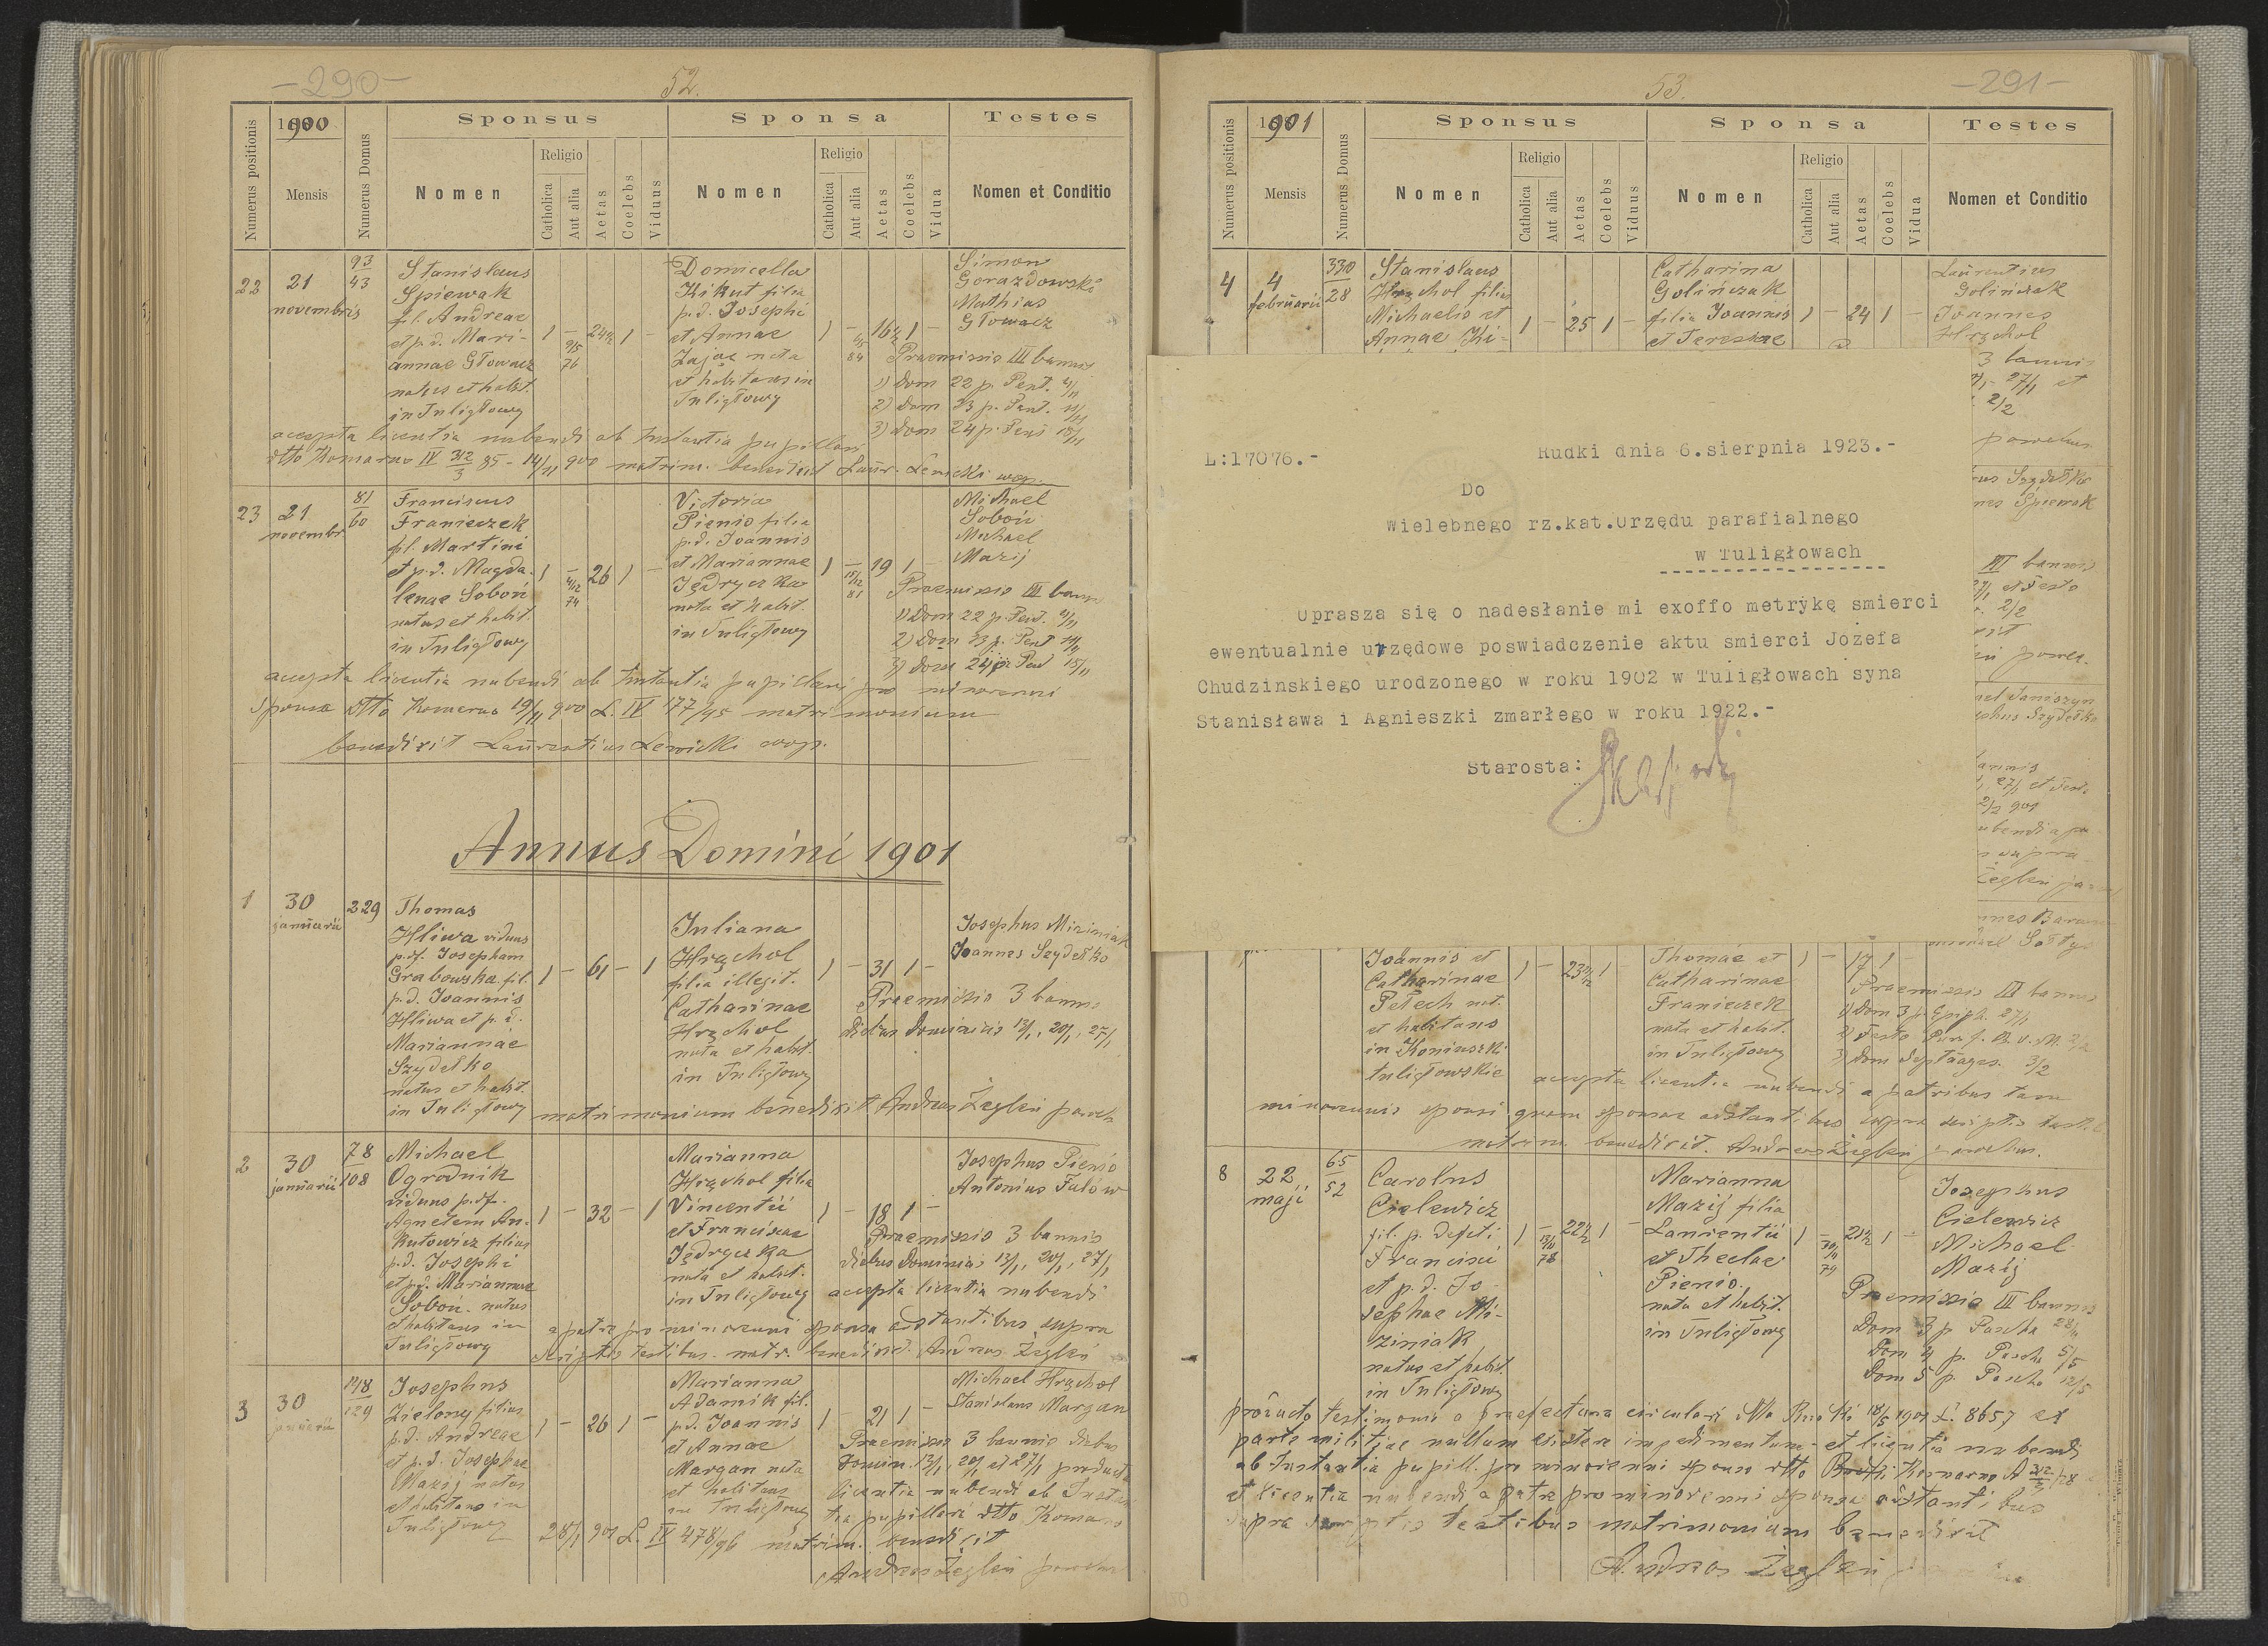 -290-
52.
1900
Numerus positionis
Mensis
Numerus Domus
Sponsus
Nomen
Religio
Catholica
Aut alia
Aetas
Coelebs
Viduus
Sponsa
Nomen
Religio
Catholica
Aut alia
Aetas
Coelebs
Vidua
Testes
Nomen et Conditio
22
21
novembris
93
43
Stanislaus
Spiewak
fil. Andreae
et p.d. Mari-
annae Głowacz
natus et habit.
in Tuligłowy
1 - 24½ 1 -
9/5
76
Domicella
Kikut filia
p.d. Josephi
et Annae
Zając nata
et habitans in
Tuligłowy
1 - 16½ 1 -
84
Simon
Gorazdowski
Mathias
Głowacz
Praemissis III bannis
1) Dom 22 p. Pent. 4/11
2) Dom 23 p. Pent. 11/11
3) Dom 24 p. Pent 18/11
accepta licentia nubendi ab Instantia pupillari
dtto Komarno IV 312/3 85 - 14/11 900 matrim. benedixit Laur. Lewicki coop.
23
21
novembr
81
60
Franciscus
Franieczek
fil. Martini
et p.d. Magda-
lenae Soboń
natus et habit.
in Tuligłowy
1 - 26 1 -
4/12
74
Victoria
Pienio filia
p.d. Joannis
et Mariannae
Jędryczka
nata et habit.
in Tuligłowy
1 - 19 1 -
15/12
81
Michael
Soboń
Michael
Mazij
Praemissis III bann
1) Dom 22 p. Pent. 4/11
2) Dom 23 p. Pent 11/11
3) Dom 24 p. Pent 18/11
accepta licentia nubendi ab Instantia pupillari pro minorenni
sponsa dtto Komarno 19/11 900 L. IV 177/95 matrimonium
benedixit Laurentius Lewicki coop.
Annus Domini 1901
1
30
januarii
229
Thomas
Hliwa viduus
p.df. Josepham
Grabowska fil.
p.d. Joannis
Hliwa et p.d.
Mariannae
Szydełko
natus et habit.
in Tuligłowy
1 - 61 - 1
Juliana
Hrzchol
filia illegit.
Catharinae
Hrzchol
nata et habit.
in Tuligłowy
1 - 31 1 -
Josephus Miziniak
Joannes Szydełko
Praemissis 3 bannis
diebus Dominicis 13/1, 20/1, 27/1
matrimonium benedixit Andreas Żegleń paroch
2
30
januarii
78
108
Michael
Ogrodnik
viduus p.df.
Agnetem An-
kutowicz filius
p.d. Josephi
et p.d. Mariannae
Soboń. natus
et habitans in
Tuligłowy
1 - 32 - 1
Marianna
Hrzchol filia
Vincentii
et Franciscae
Jędryczka
nata et habit.
in Tuligłowy
1 - 18 1 -
Josephus Pienio
Antonius Fulów
Praemissis 3 bannis
diebus Dominicis 13/1, 20/1, 27/1
accepta licentia nubendi
a patre pro minorenni sponsa adstantibus supra
scriptis testibus. matr. benedixit. Andreas Żegleń
3
30
januarii
148
129
Josephus
Zielony filius
p.d. Andreae
et p.d. Josephae
Mazij natus
et habitans in
Tuligłowy
1 - 26 1 -
Marianna
Adamik fil.
p.d. Joannis
et Annae
Margan nata
et habitans
in Tuligłowy
1 - 21 1 -
Michael Hrzchol
Stanislaus Margan
Praemissis 3 bannis diebus
Domin. 13/1, 20/1 et 27/1 producta
licentia nubendi ab Instan
tia pupillari dtto Komarno
28/1 901 L. IV 478/96 matrim. benedixit
Andreas Żegleń parochus
53.
-291-
1901
Numerus positionis
Mensis
Numerus Domus
Sponsus
Nomen
Religio
Catholica
Aut alia
Aetas
Coelebs
Viduus
Sponsa
Nomen
Religio
Catholica
Aut alia
Aetas
Coelebs
Vidua
Testes
Nomen et Conditio
4
4
februarii
330
28
Stanislaus
Hrzchol filius
Michaelis et
Annae Ki-
1 - 25 1 -
Catharina
Golińczak
filia Joannis
et Teresiae
1 - 24 1 -
Laurentius
Golińczak
Joannes
Hrzchol
3 bannis
27/1 et
2/2
L:17076.-
Rudki dnia 6.sierpnia 1923.-
Do
Wielebnego rz.kat.Urzędu parafialnego
w Tuligłowach
Uprasza się o nadesłanie mi exoffo metrykę smierci
ewentualnie urzędowe poswiadczenie aktu smierci Józefa
Chudzinskiego urodzonego w roku 1902 w Tuligłowach syna
Stanisława i Agnieszki zmarłego w roku 1922.-
Starosta:
Joannis et
Catharinae
Petech nat.
et habitans
in Koniuszki
tuligłowskie
1 - 23½ 1 -
Thomae et
Catharinae
Franieczek
nata et habit.
in Tuligłowy
1 - 17 1 -
Praemissis III bannis
1) Dom 3 p. Epiph. 27/1
2) Festo Purif. B.V.M. 2/2
3) Dom Septuages. 3/2
accepta licentia nubendi a patribus tam
minorennis sponsi quam sponsae adstantibus supra scriptis testib
matrim. benedixit. Andreas Żegleń parochus.
8
22
maji
65
52
Carolus
Cielewicz
fil. p. defcti
Francisci
et p.d. Jo-
sephae Mi-
ziniak
natus et habit.
in Tuligłowy
1 - 22½ 1 -
78
Marianna
Mazij filia
Laurentii
et Theclae
Pienio.
nata et habit.
in Tuligłowy
1 - 21½ 1 -
79
Josephus
Cielewicz
Michael
Mazij
Praemissis III bannis
Dom 3 p Pascha 28/4
Dom 4 p. Pascha 5/5
Dom 5 p. Pascha 12/5
producto testimonio a praefectura circulari dtto Rudki 18/5 1901 L. 8657 ex
parte militiae nullum existere impedimentum et licentia nubendi
ab Instantia pupill. pro minorenni sponso dtto Komarno A 312/3 /78
et licentia nubendi a patre pro minorenni sponsa adstantibus
supra scriptis testibus matrimonium benedixit
Andreas Żegleń